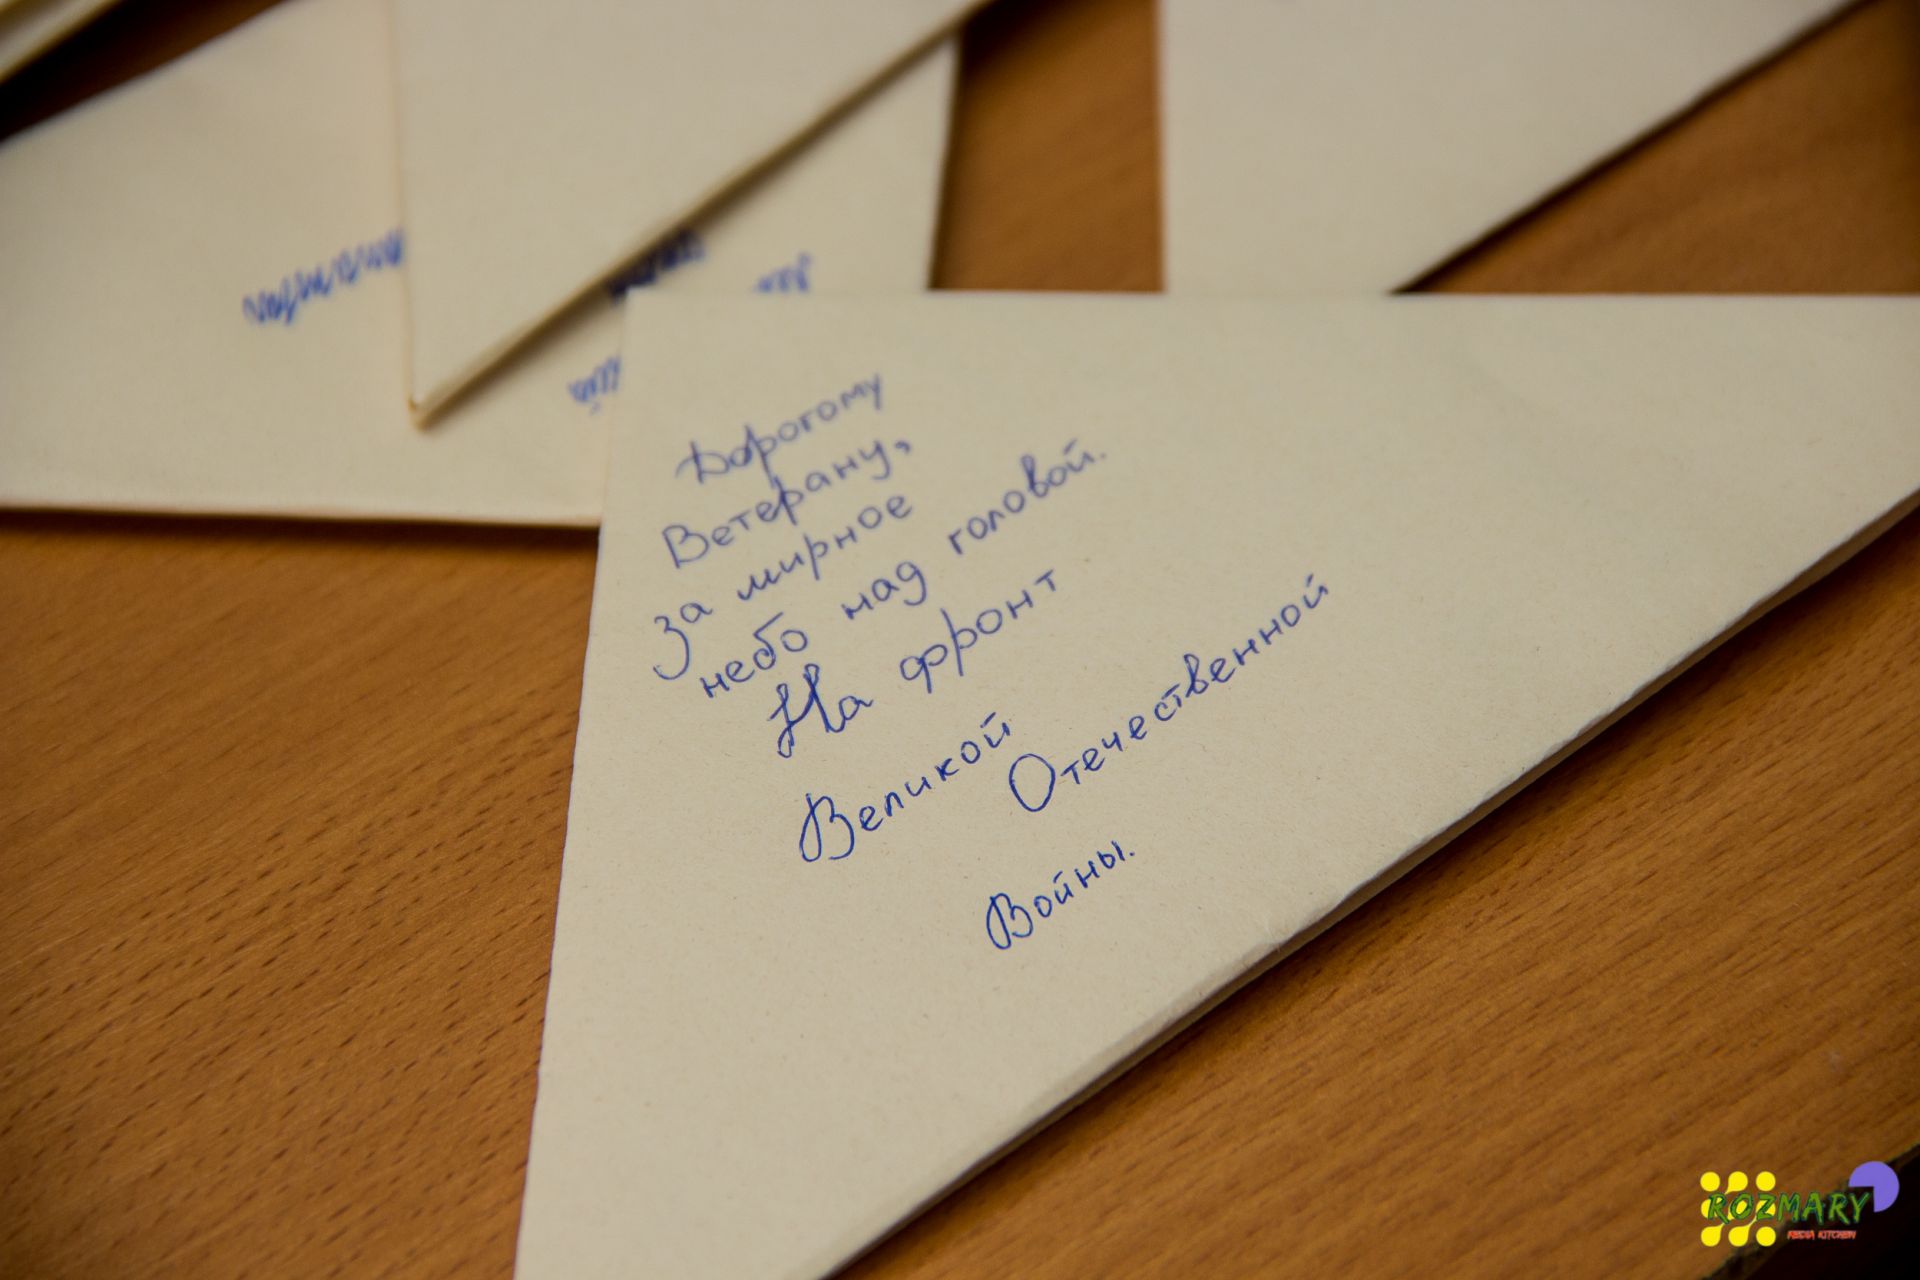 Дорогому
Ветерану,
за мирное
небо над головой.
На фронт
Великой
Отечественной
Войны.
ROZMARY
MEDIA KITCHEN